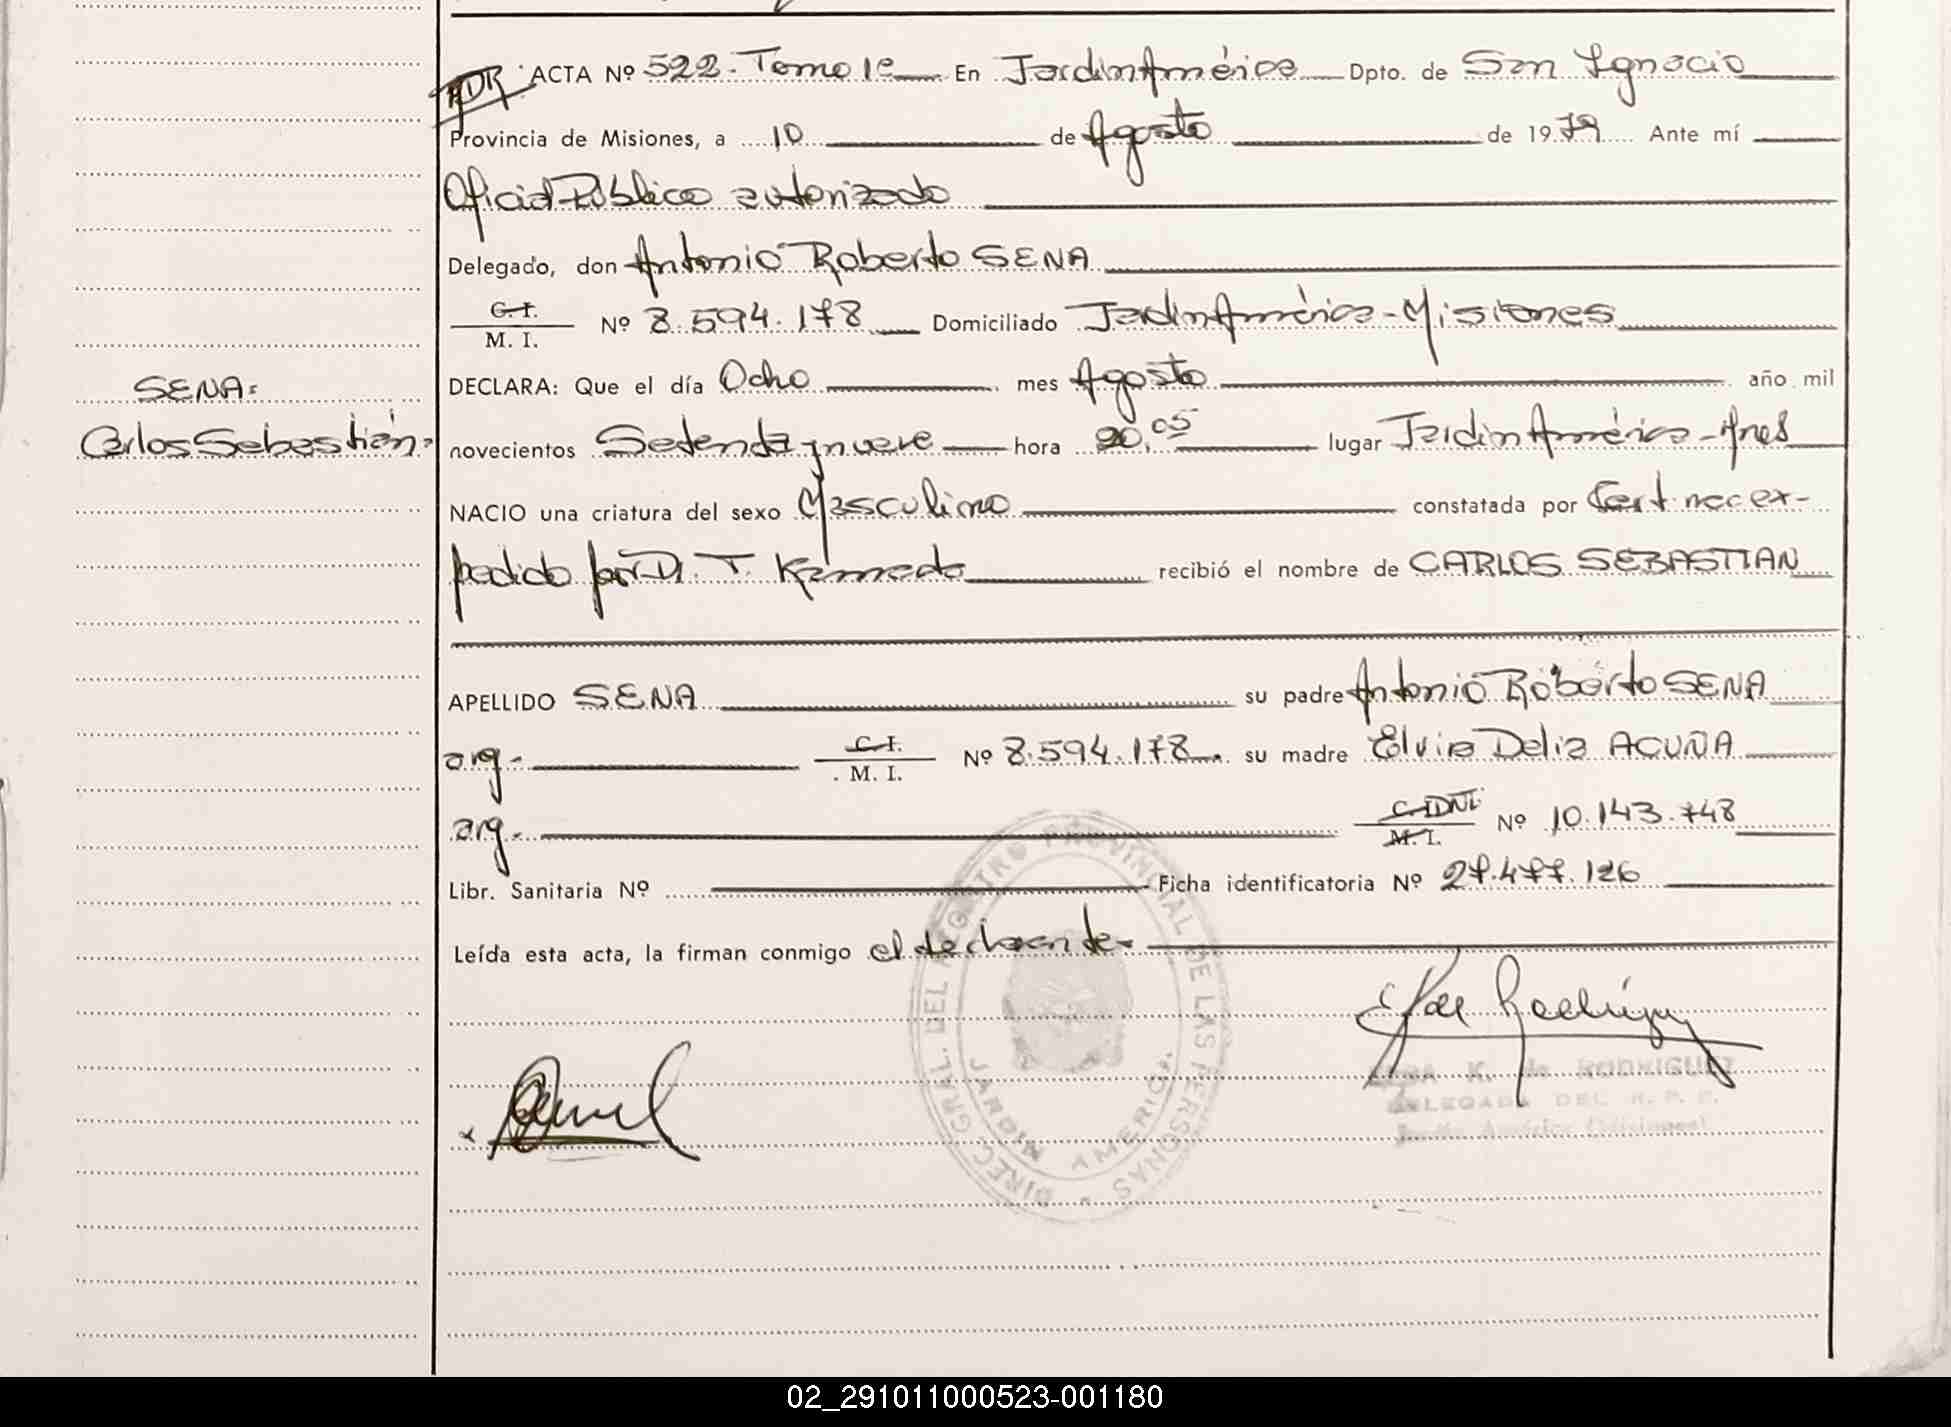 ADR ACTA Nº 522. Tomo 1º En Jardín América Dpto. de San Ignacio
Provincia de Misiones, a 10 de Agosto de 1979 Ante mí
Oficial Público autorizado
Delegado, don Antonio Roberto SENA
C. I.
M. I. Nº 8.594.178 Domiciliado Jardín América - Misiones
DECLARA: Que el día Ocho mes Agosto año mil
SENA:
Carlos Sebastián
novecientos Setenta y nueve hora 20,05 lugar Jardín América - Mnes
NACIO una criatura del sexo Masculino constatada por Cert. nac. ex-
pedido por Dr. T. Kameda recibió el nombre de CARLOS SEBASTIAN
APELLIDO SENA su padre Antonio Roberto SENA
arg. C. I.
M. I. Nº 8.594.178 su madre Elvia Delia ACUÑA
arg. C. I. DNI
M. I. Nº 10.143.748
Libr. Sanitaria Nº Ficha identificatoria Nº 27.477.126
Leída esta acta, la firman conmigo el declarante
DIREC. GRAL. DEL REGISTRO PROVINCIAL DE LAS PERSONAS
JARDIN AMERICA
K. de RODRIGUEZ
DELEGADA DEL R. P. P.
Jardín América (Misiones)
02_291011000523-001180